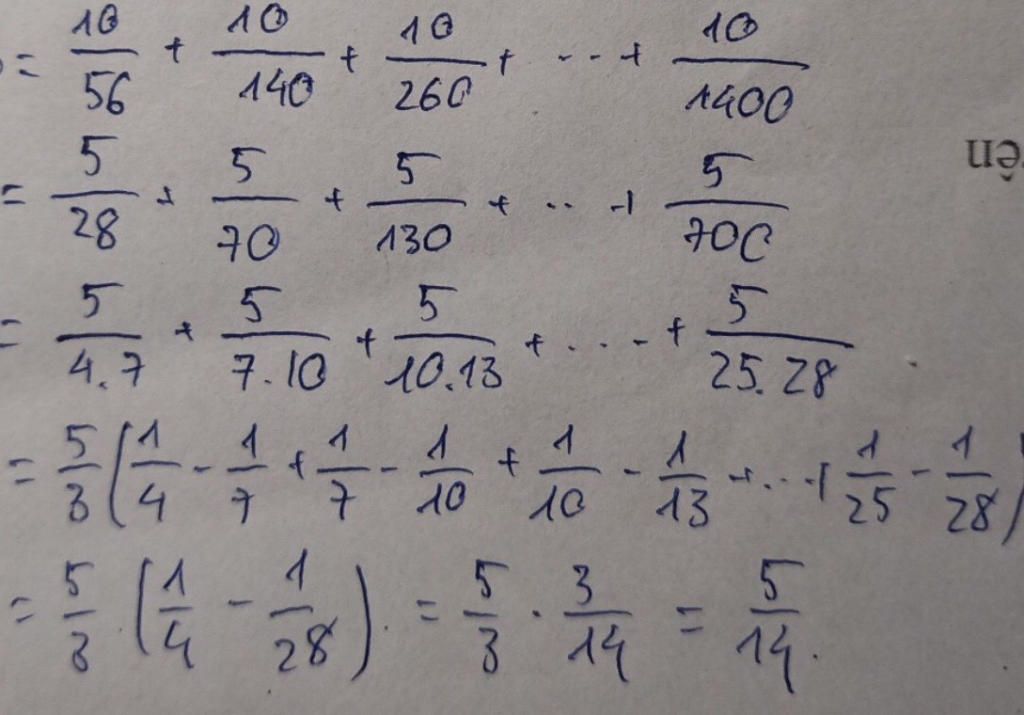 = 10/56 + 10/140 + 10/260 + ... + 10/1400
= 5/28 + 5/70 + 5/130 + ... + 5/700
= 5/4.7 + 5/7.10 + 5/10.13 + ... + 5/25.28
= 5/3 (1/4 - 1/7 + 1/7 - 1/10 + 1/10 - 1/13 + ... + 1/25 - 1/28)
= 5/3 . (1/4 - 1/28) . = 5/3 . 3/14 = 5/14 .
ên